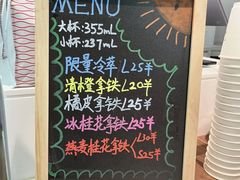 MENU
大杯:355mL
小杯:237mL
限量冷萃 L25羊
清橙拿铁 L20羊
橘皮拿铁 L25羊
冰桂花拿铁 L25羊
燕麦桂花拿铁 L30羊
S25羊